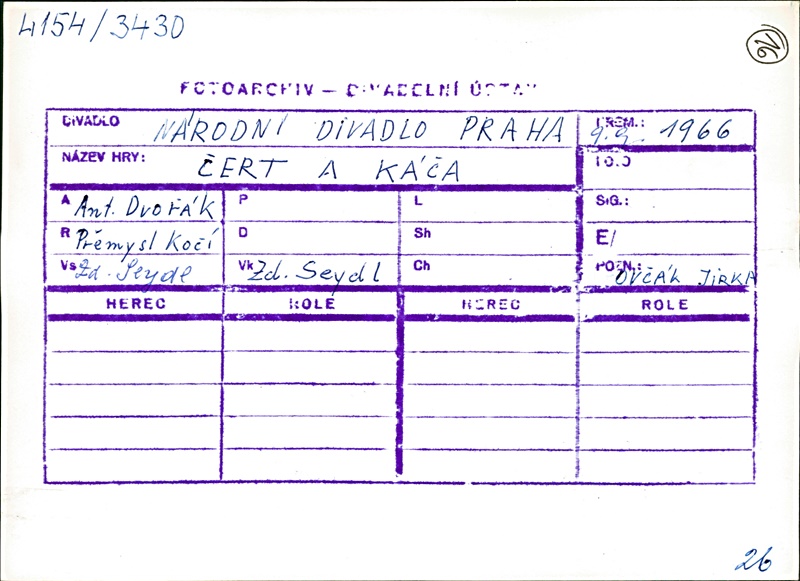 4154/3430
26
FOTOARCHIV — DIVADELNÍ ÚSTAV
DIVADLO NÁRODNÍ DIVADLO PRAHA PREM.: 9.9. 1966
NÁZEV HRY: ČERT A KÁČA FOTO
A Ant. Dvořák P L SIG.:
R Přemysl Kočí D Sh E/
Vs Zd. Seydl Vk Zd. Seydl Ch POZN.: OVČÁK JIRKA
HEREC ROLE HEREC ROLE
26